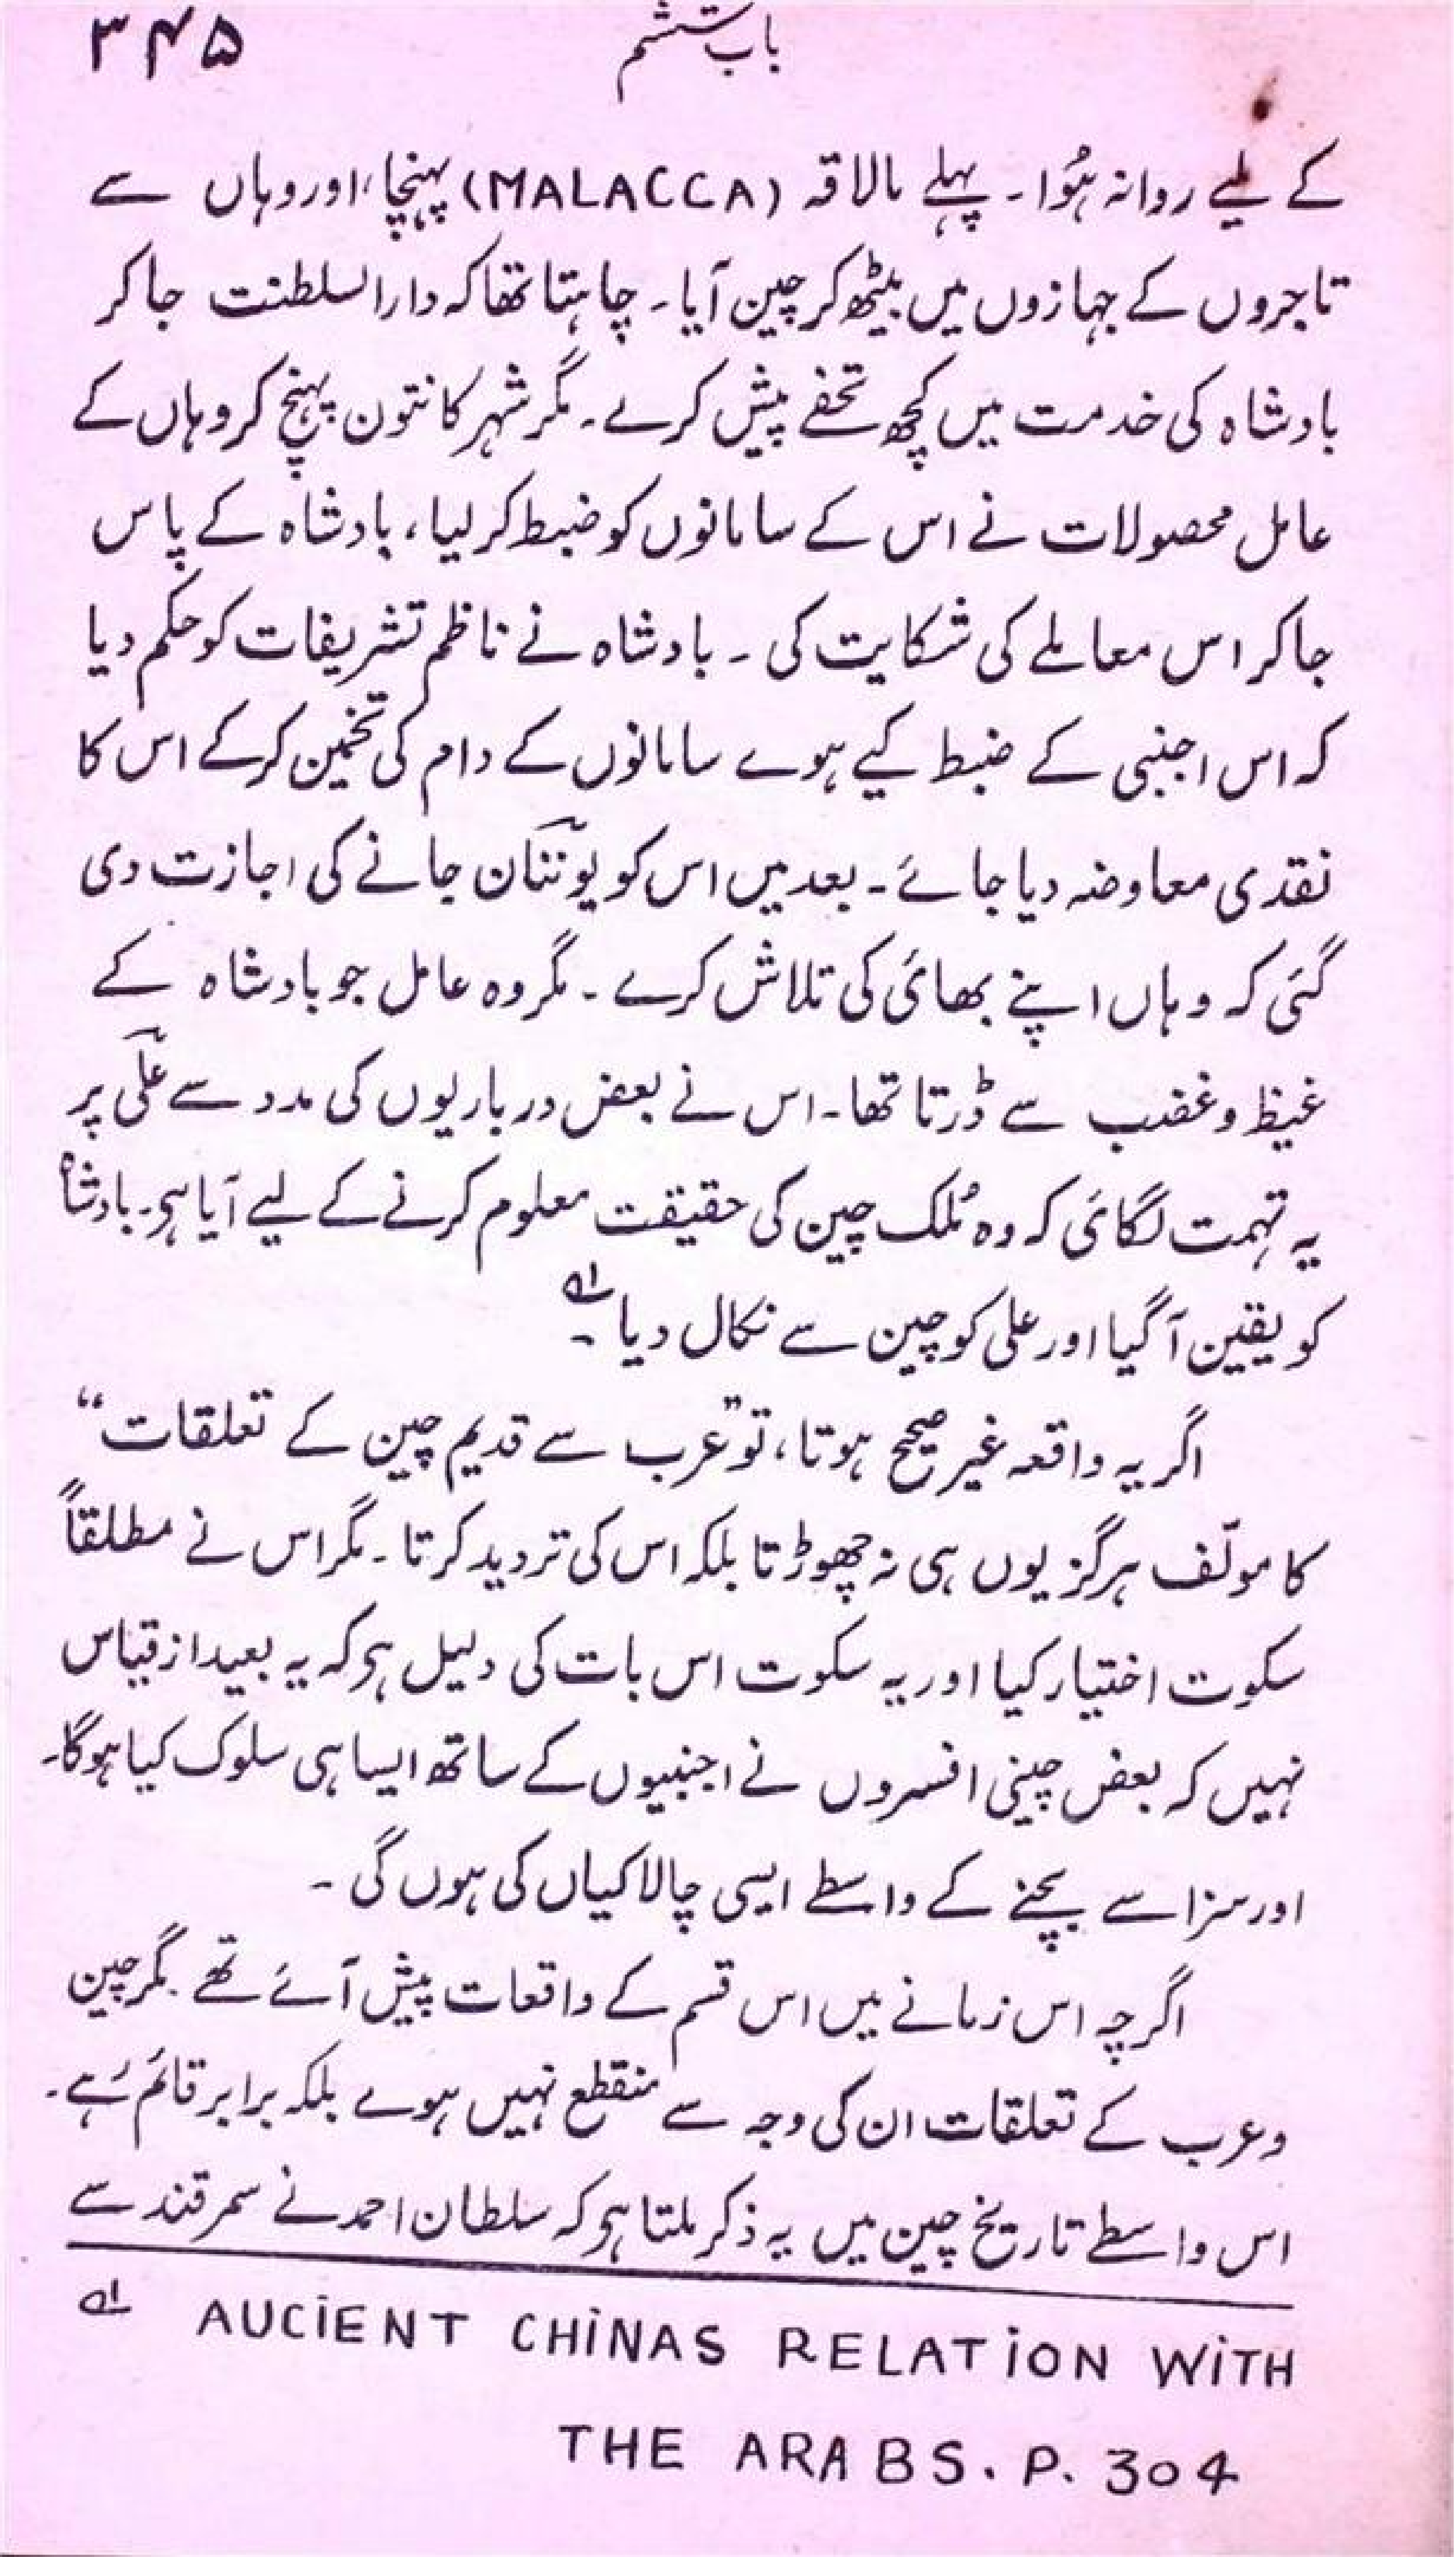 باب ششم ۳۴۵
کے لیے روانہ ہُوا۔ پہلے مالاقہ (MALACCA) پہنچا، اور وہاں سے
تاجروں کے جہازوں میں بیٹھ کر چین آیا۔ چاہتا تھا کہ دارالسلطنت جا کر
بادشاہ کی خدمت میں کچھ تحفے پیش کرے۔ مگر شہر کانتون پہنچ کر وہاں کے
عامل محصولات نے اس کے سامانوں کو ضبط کر لیا، بادشاہ کے پاس
جا کر اس معاملے کی شکایت کی ۔ بادشاہ نے ناظم تشریفات کو حکم دیا
کہ اس اجنبی کے ضبط کیے ہوے سامانوں کے دام کی تخمین کرکے اس کا
نقدی معاوضہ دیا جائے ۔ بعد میں اس کو یوننان جانے کی اجازت دی
گئی کہ وہاں اپنے بھائی کی تلاش کرے ۔ مگر وہ عامل جو بادشاہ کے
غیظ و غضب سے ڈرتا تھا۔ اس نے بعض درباریوں کی مدد سے علی پر
یہ تہمت لگائی کہ وہ مُلک چین کی حقیقت معلوم کرنے کے لیے آیا ہی۔ بادشاہ
کو یقین آگیا اور علی کو چین سے نکال دیا ؎۱ ۔
اگر یہ واقعہ غیر صحیح ہوتا، تو ”عرب سے قدیم چین کے تعلقات“
کا مولّف ہرگز یوں ہی نہ چھوڑتا بلکہ اس کی تردید کرتا ۔ مگر اس نے مطلقاً
سکوت اختیار کیا اور یہ سکوت اس بات کی دلیل ہی کہ یہ بعید از قیاس
نہیں کہ بعض چینی افسروں نے اجنبیوں کے ساتھ ایسا ہی سلوک کیا ہوگا۔
اور سزا سے بچنے کے واسطے ایسی چالاکیاں کی ہوں گی ۔
اگرچہ اس زمانے میں اس قسم کے واقعات پیش آئے تھے ۔ مگر چین
و عرب کے تعلقات ان کی وجہ سے منقطع نہیں ہوے بلکہ برابر قائم رہے۔
اس واسطے تاریخ چین میں یہ ذکر ملتا ہی کہ سلطان احمد نے سمرقند سے
؎۱ AUCIENT CHINAS RELATION WITH
THE ARABS. P. 304